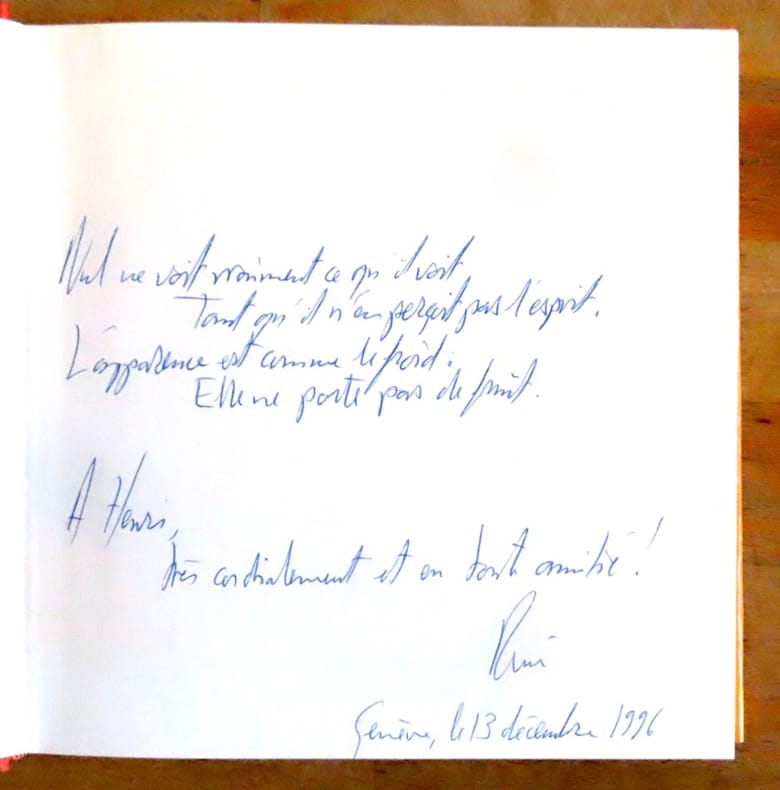 Nul ne voit vraiment ce qu'il voit
Tant qu'il n'en perçoit pas l'esprit.
L'apparence est comme le froid :
Elle ne porte pas de fruit.
A Henri,
très cordialement et en toute amitié !
Genève, le 13 décembre 1996